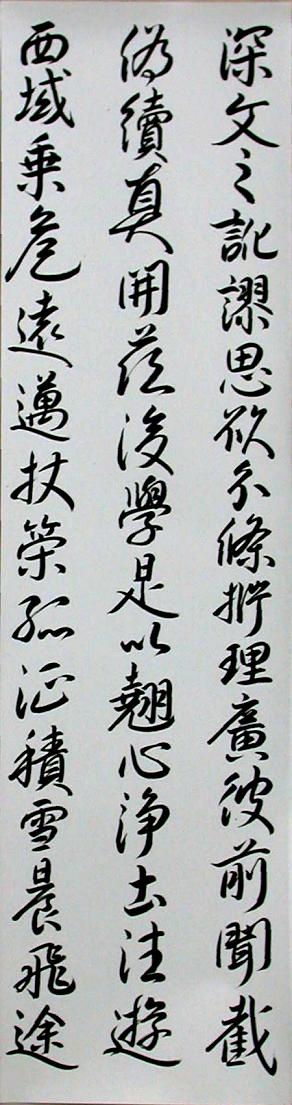 深文之訛謬思欲分條析理廣彼前聞截
偽續真開茲後學是以翹心淨土往遊
西域乗危遠邁杖策孤征積雪晨飛途